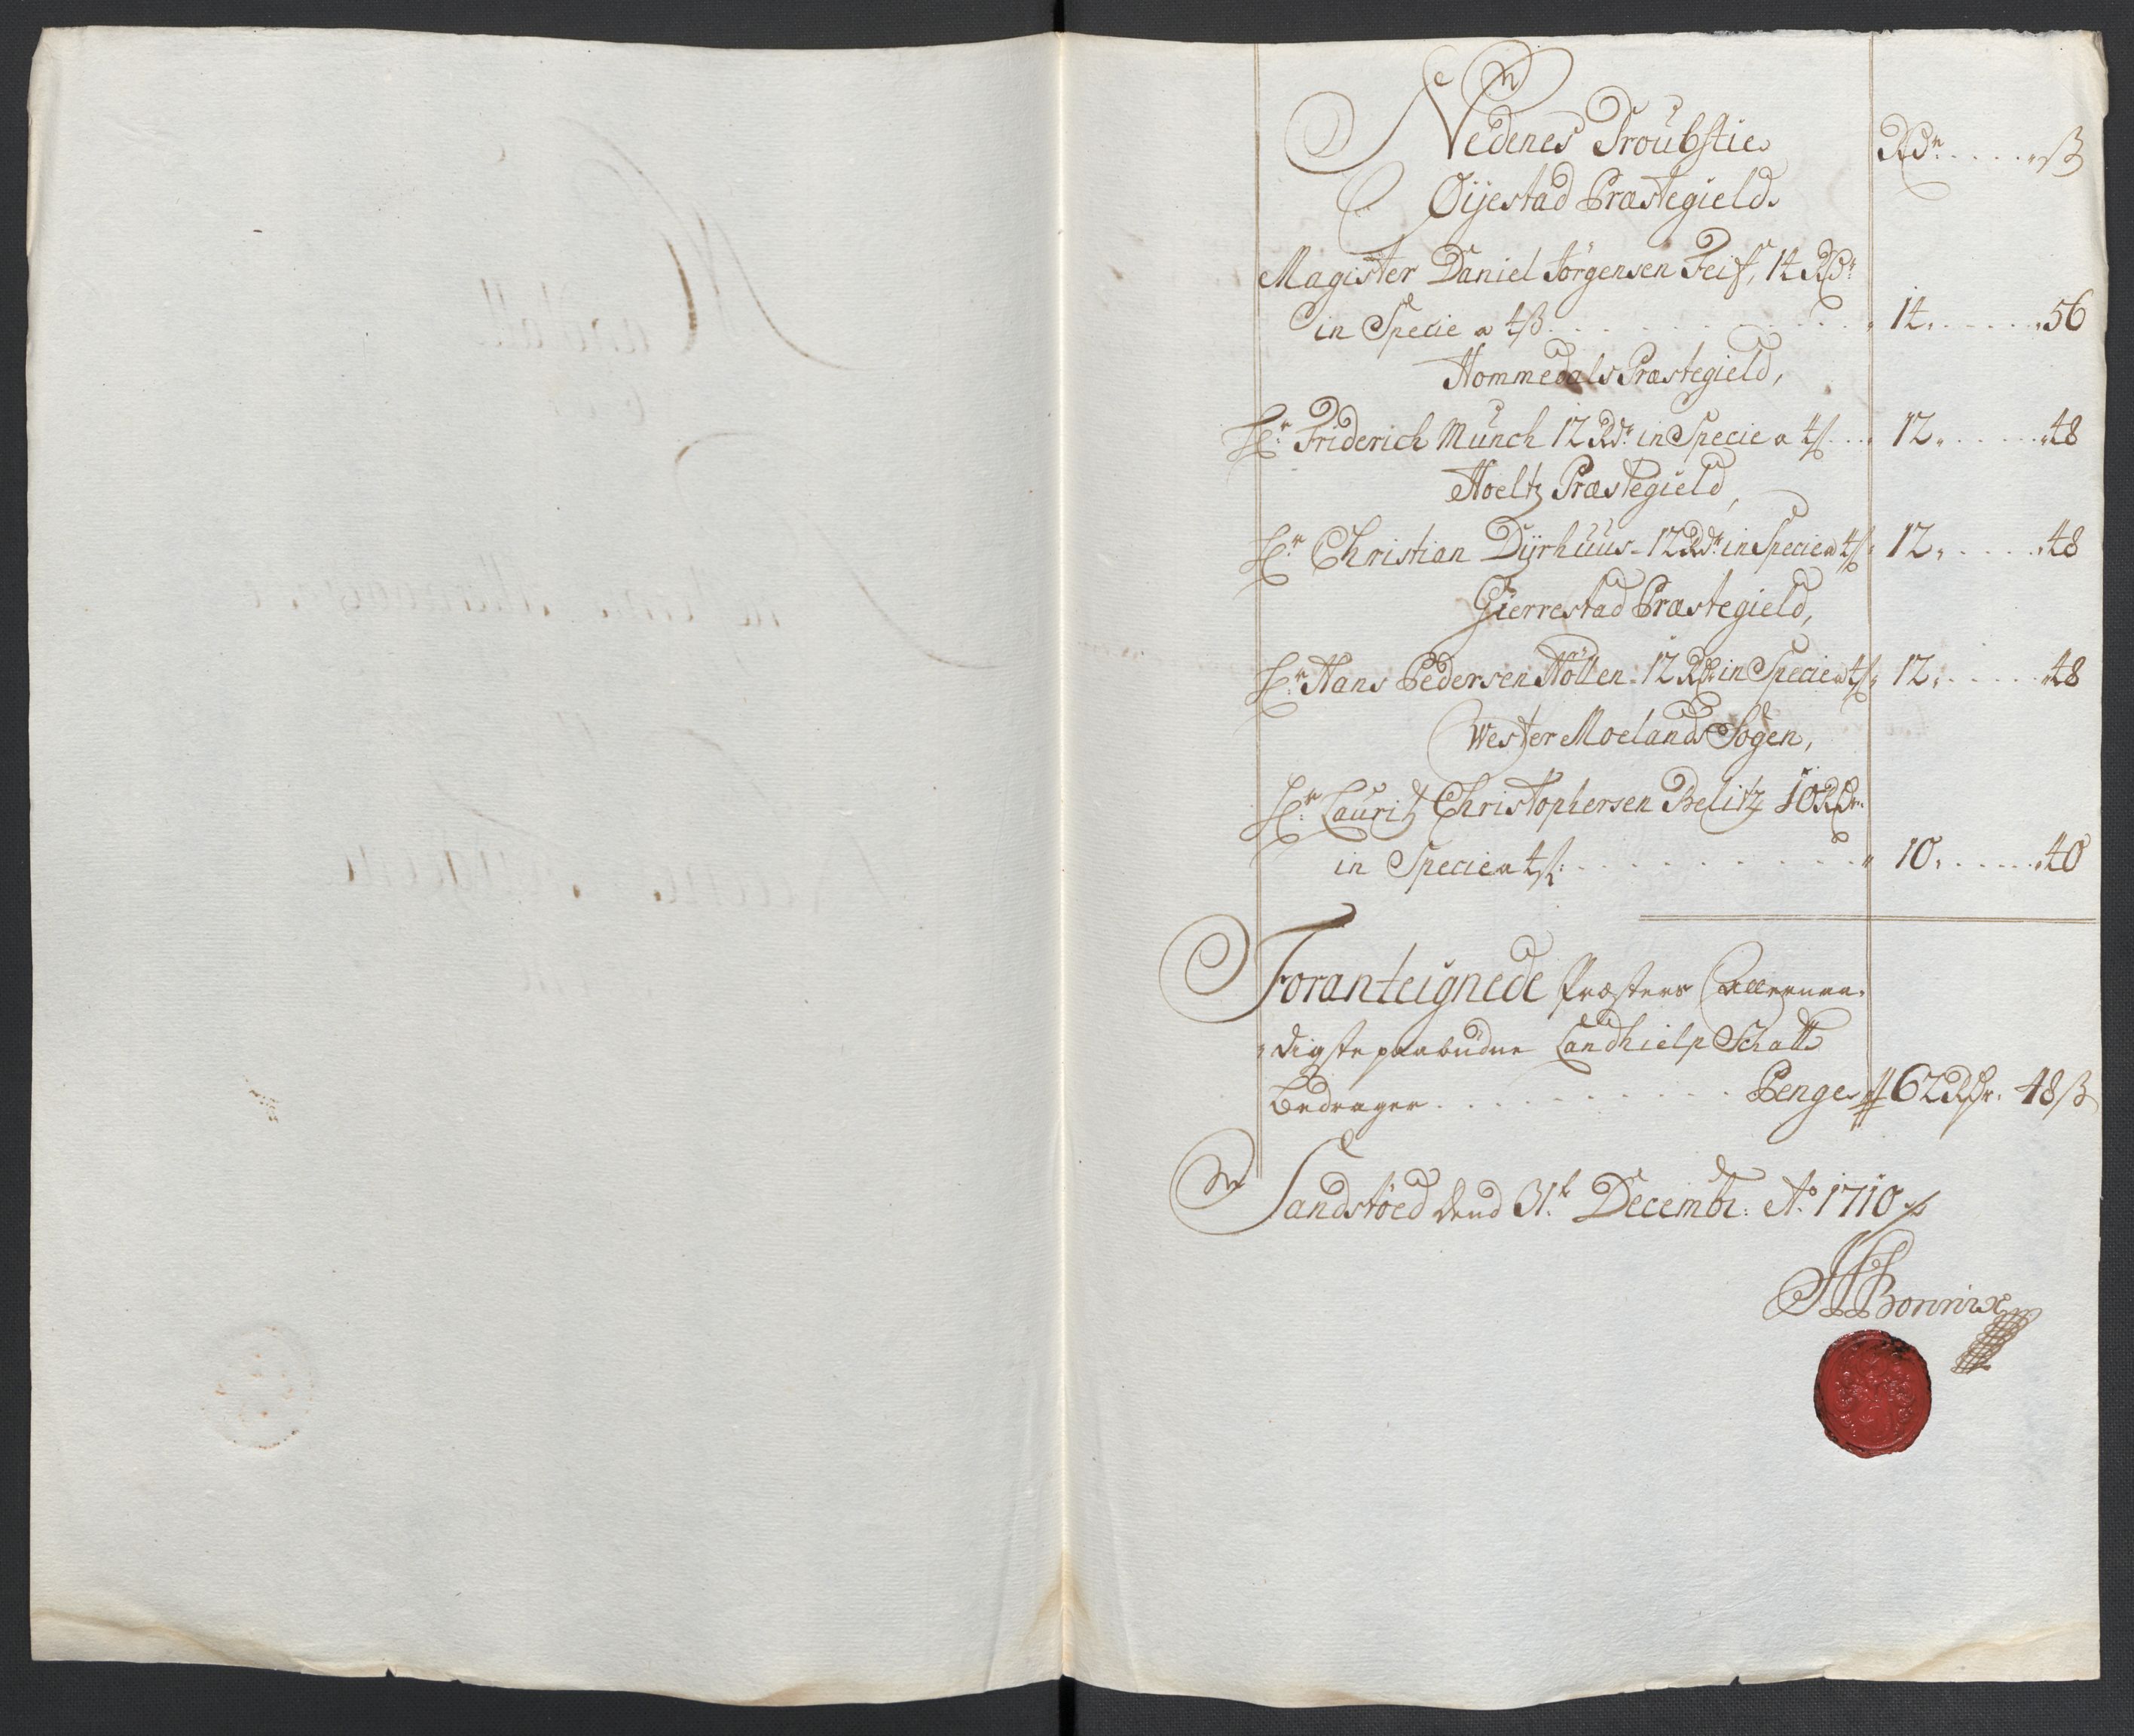 Nedenes Proubstie
Rdr ß
Øijestad Præstegield
Magister Daniel Jørgensen Feif, 14 Rdr
in Specie a 4ß 14 56
Hommedals Præstegield,
Hr Friderich Munch 12 Rdr in Specie a 4ß 12 48
Hoeltz Præstegield,
Hr Christian Dÿrhuus 12 Rdr in Specie a 4ß 12 48
Gierrestad Præstegield,
Hr Hans Pedersen Höllen 12 Rdr in Specie a 4ß 12 48
Wester Moelands Sogen,
Hr Lauritz Christophersen Belitz 10 Rdr
in Specie a 4ß 10 40
Foranteignede Præsters allernaa-
digste paabudne Landhielp Schatt
bedrager Penge 62 Rdr 48 ß
Sandstöed dend 31t Decembr: Ao 1710